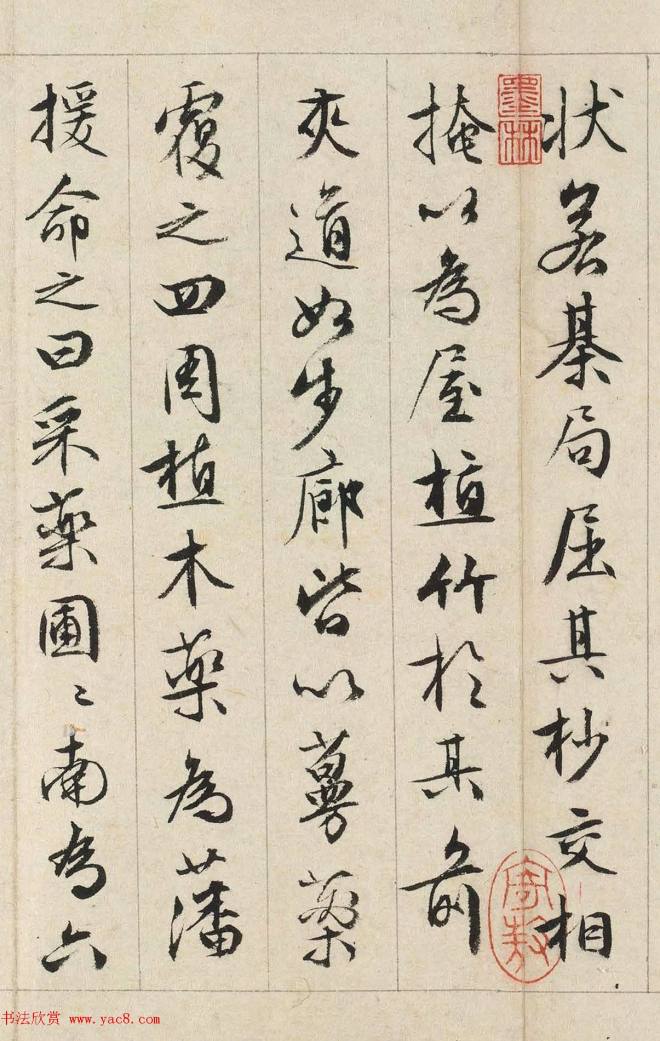 状若棊局屈其杪交相
掩以為屋植竹於其前
夾道如步廊皆以蔓藥
覆之四周植木藥為藩
援命之曰采藥圃〻南為六
墨林
寄敖
书法欣赏 www.yac8.com